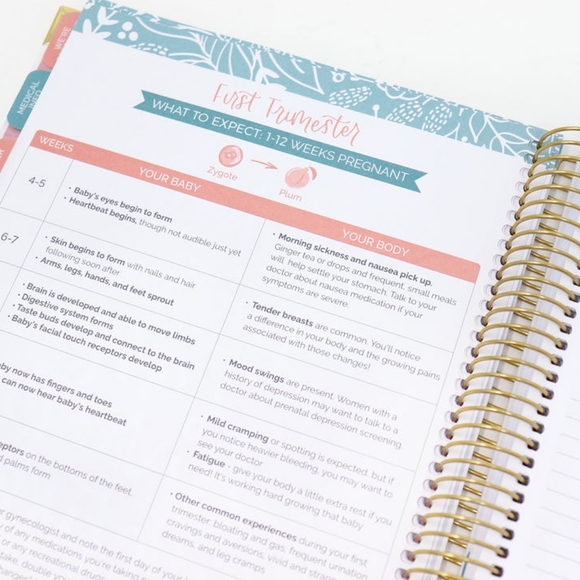 WE'RE
MEDICAL
INFO
First Trimester
WHAT TO EXPECT: 1-12 WEEKS PREGNANT
Zygote
Plum
WEEKS
YOUR BABY
YOUR BODY
4-5
• Baby's eyes begin to form
• Heartbeat begins, though not audible just yet
• Morning sickness and nausea pick up.
Ginger tea or drops and frequent, small meals
will help settle your stomach. Talk to your
doctor about nausea medication if your
symptoms are severe.
6-7
• Skin begins to form with nails and hair
following soon after
• Arms, legs, hands, and feet sprout
• Tender breasts are common. You'll notice
a difference in your body and the growing pains
associated with those changes!
• Brain is developed and able to move limbs
• Digestive system forms
• Taste buds develop and connect to the brain
• Baby's facial touch receptors develop
• Mood swings are present. Women with a
history of depression may want to talk to a
doctor about prenatal depression screening.
by now has fingers and toes
can now hear baby's heartbeat
• Mild cramping or spotting is expected, but if
you notice heavier bleeding, you may want to
see your doctor
• Fatigue - give your body a little extra rest if you
need! It's working hard growing that baby
eptors on the bottoms of the feet,
d palms form
• Other common experiences during your first
trimester: bloating and gas, frequent urination
cravings and aversions, vivid and strange
dreams, and leg cramps
gynecologist and note the first day of your
of any medications you're taking
or any recreational drugs
take, double